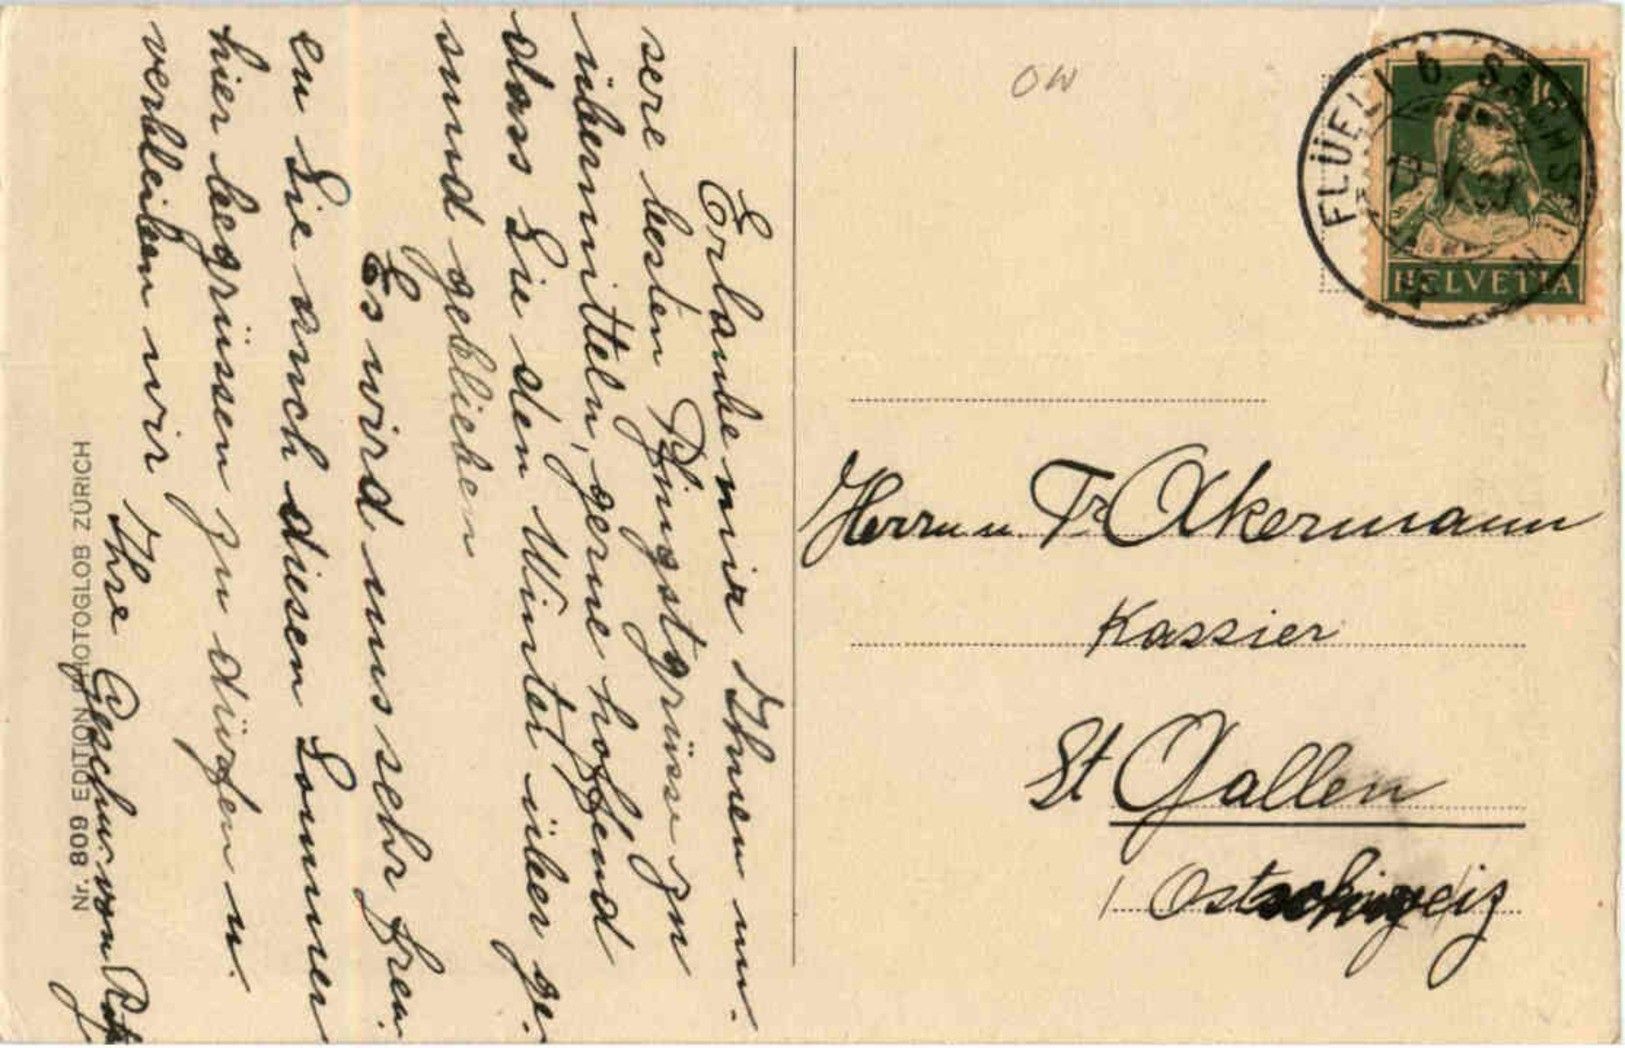 Erlaube mir Ihnen un-
sere besten Pfingstgrüsse zu
übermitteln, gerne hoffend
dass Sie den Winter über ge-
sund geblieben
Es wird uns sehr freu-
en Sie auch diesen Sommer
hier begrüssen zu dürfen u.
verbleiben wir
Ihre Geschw. von Rotz
Nr. 809 EDITION PHOTOGLOB ZÜRICH
OW
FLÜELI b. SACHSELN
HELVETIA
Herrn u. Fr Akermann
Kassier
St Gallen
Ostschweiz